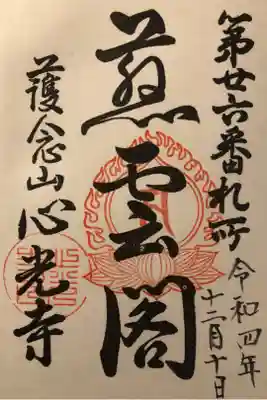 第廿六番札所
令和四年
十二月十日
慈雲閣
護念山心光寺